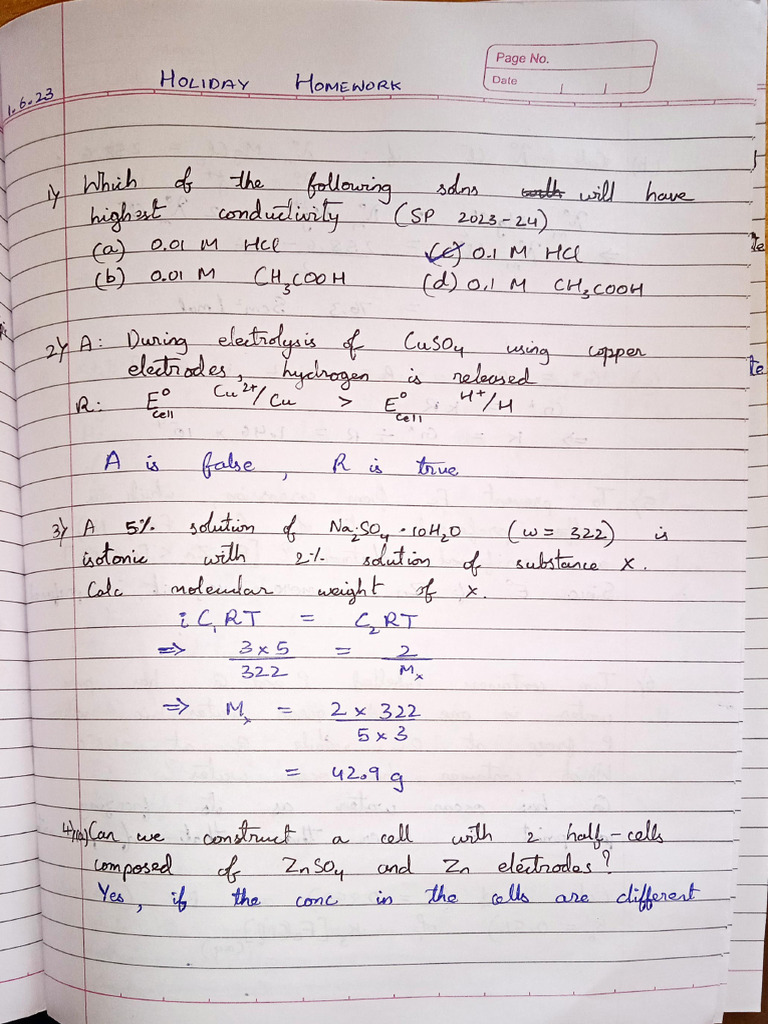 Page No.
Date
1.6.23
HOLIDAY HOMEWORK
1) Which of the following solns will have
highest conductivity (SP 2023-24)
(a) 0.01 M HCl (c) 0.1 M HCl
(b) 0.01 M CH₃COOH (d) 0.1 M CH₃COOH
2) A: During electrolysis of CuSO₄ using copper
electrodes, hydrogen is released
R: E°cell Cu²⁺/Cu > E°cell H⁺/H
A is false, R is true
3) A 5% solution of Na₂SO₄·10H₂O (w = 322) is
isotonic with 2% solution of substance x.
Calc molecular weight of x.
i C₁RT = C₂RT
⇒ 3 x 5 / 322 = 2 / Mₓ
⇒ Mₓ = 2 x 322 / 5 x 3
= 42.9 g
4) (a) Can we construct a cell with 2 half-cells
composed of ZnSO₄ and Zn electrodes?
Yes, if the conc in the cells are different